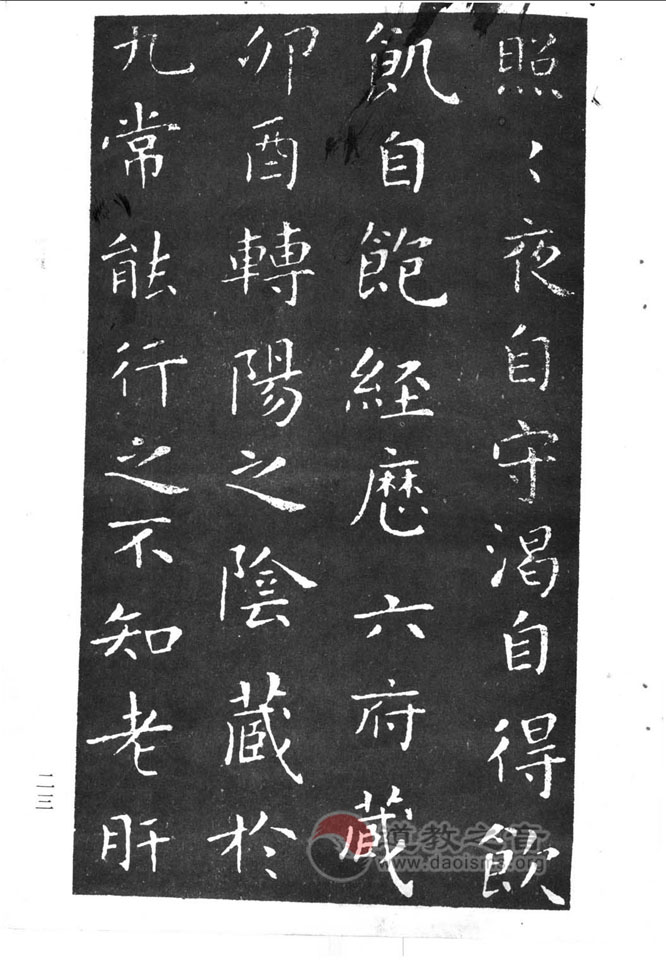 照〻夜自守渴自得飲
飢自飽經歷六府藏
卯酉轉陽之陰藏於
九常能行之不知老肝
二三
道教之音
www.daoisms.org